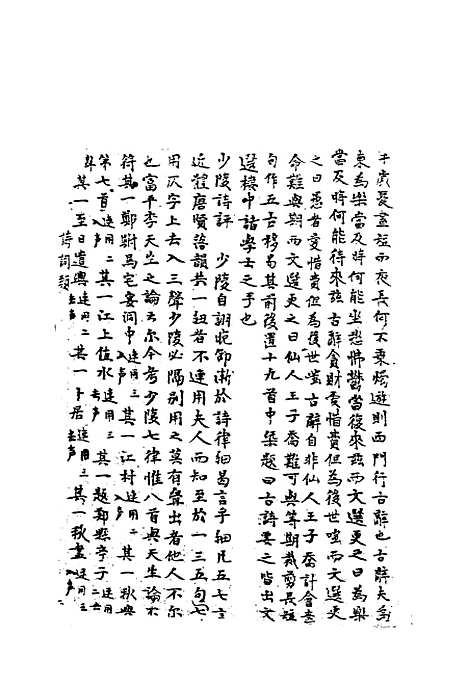 千歲憂晝短而夜長何不秉燭遊則西門行古辭也古辭夫為
樂為樂當及時何能坐愁怫鬱當復來茲而文選更之曰為樂
當及時何能待來茲古辭貪財愛惜費但為後世嗤而文選更
之曰愚者愛惜費但為後世嗤古辭自非仙人王子喬計會壽
命難與期而文選更之曰仙人王子喬難可與等期裁剪長短
句作五古移易其前後置十九首中槩題曰古詩要之皆出文
選樓中諸學士之手也
少陵詩評 少陵自詡晚節漸於詩律細曷言乎細凡五七言
近體唐賢落韻共一紐者不連用夫人而知至於一三五句
用仄字上去入三聲少陵必隔別用之莫有疊出者他人不尔
也富平李天生之論云尔今考少陵七律惟八首與天生論不
符其一鄭駙馬宅宴洞中連用三入聲其一江村連用二入聲其一秋興
第七首連用二入聲其一江上值水連用三去聲其一題鄭縣亭子
其一至日遣興連用二去聲其一卜居連用三去聲其一秋盡連用三入聲
詩詞類